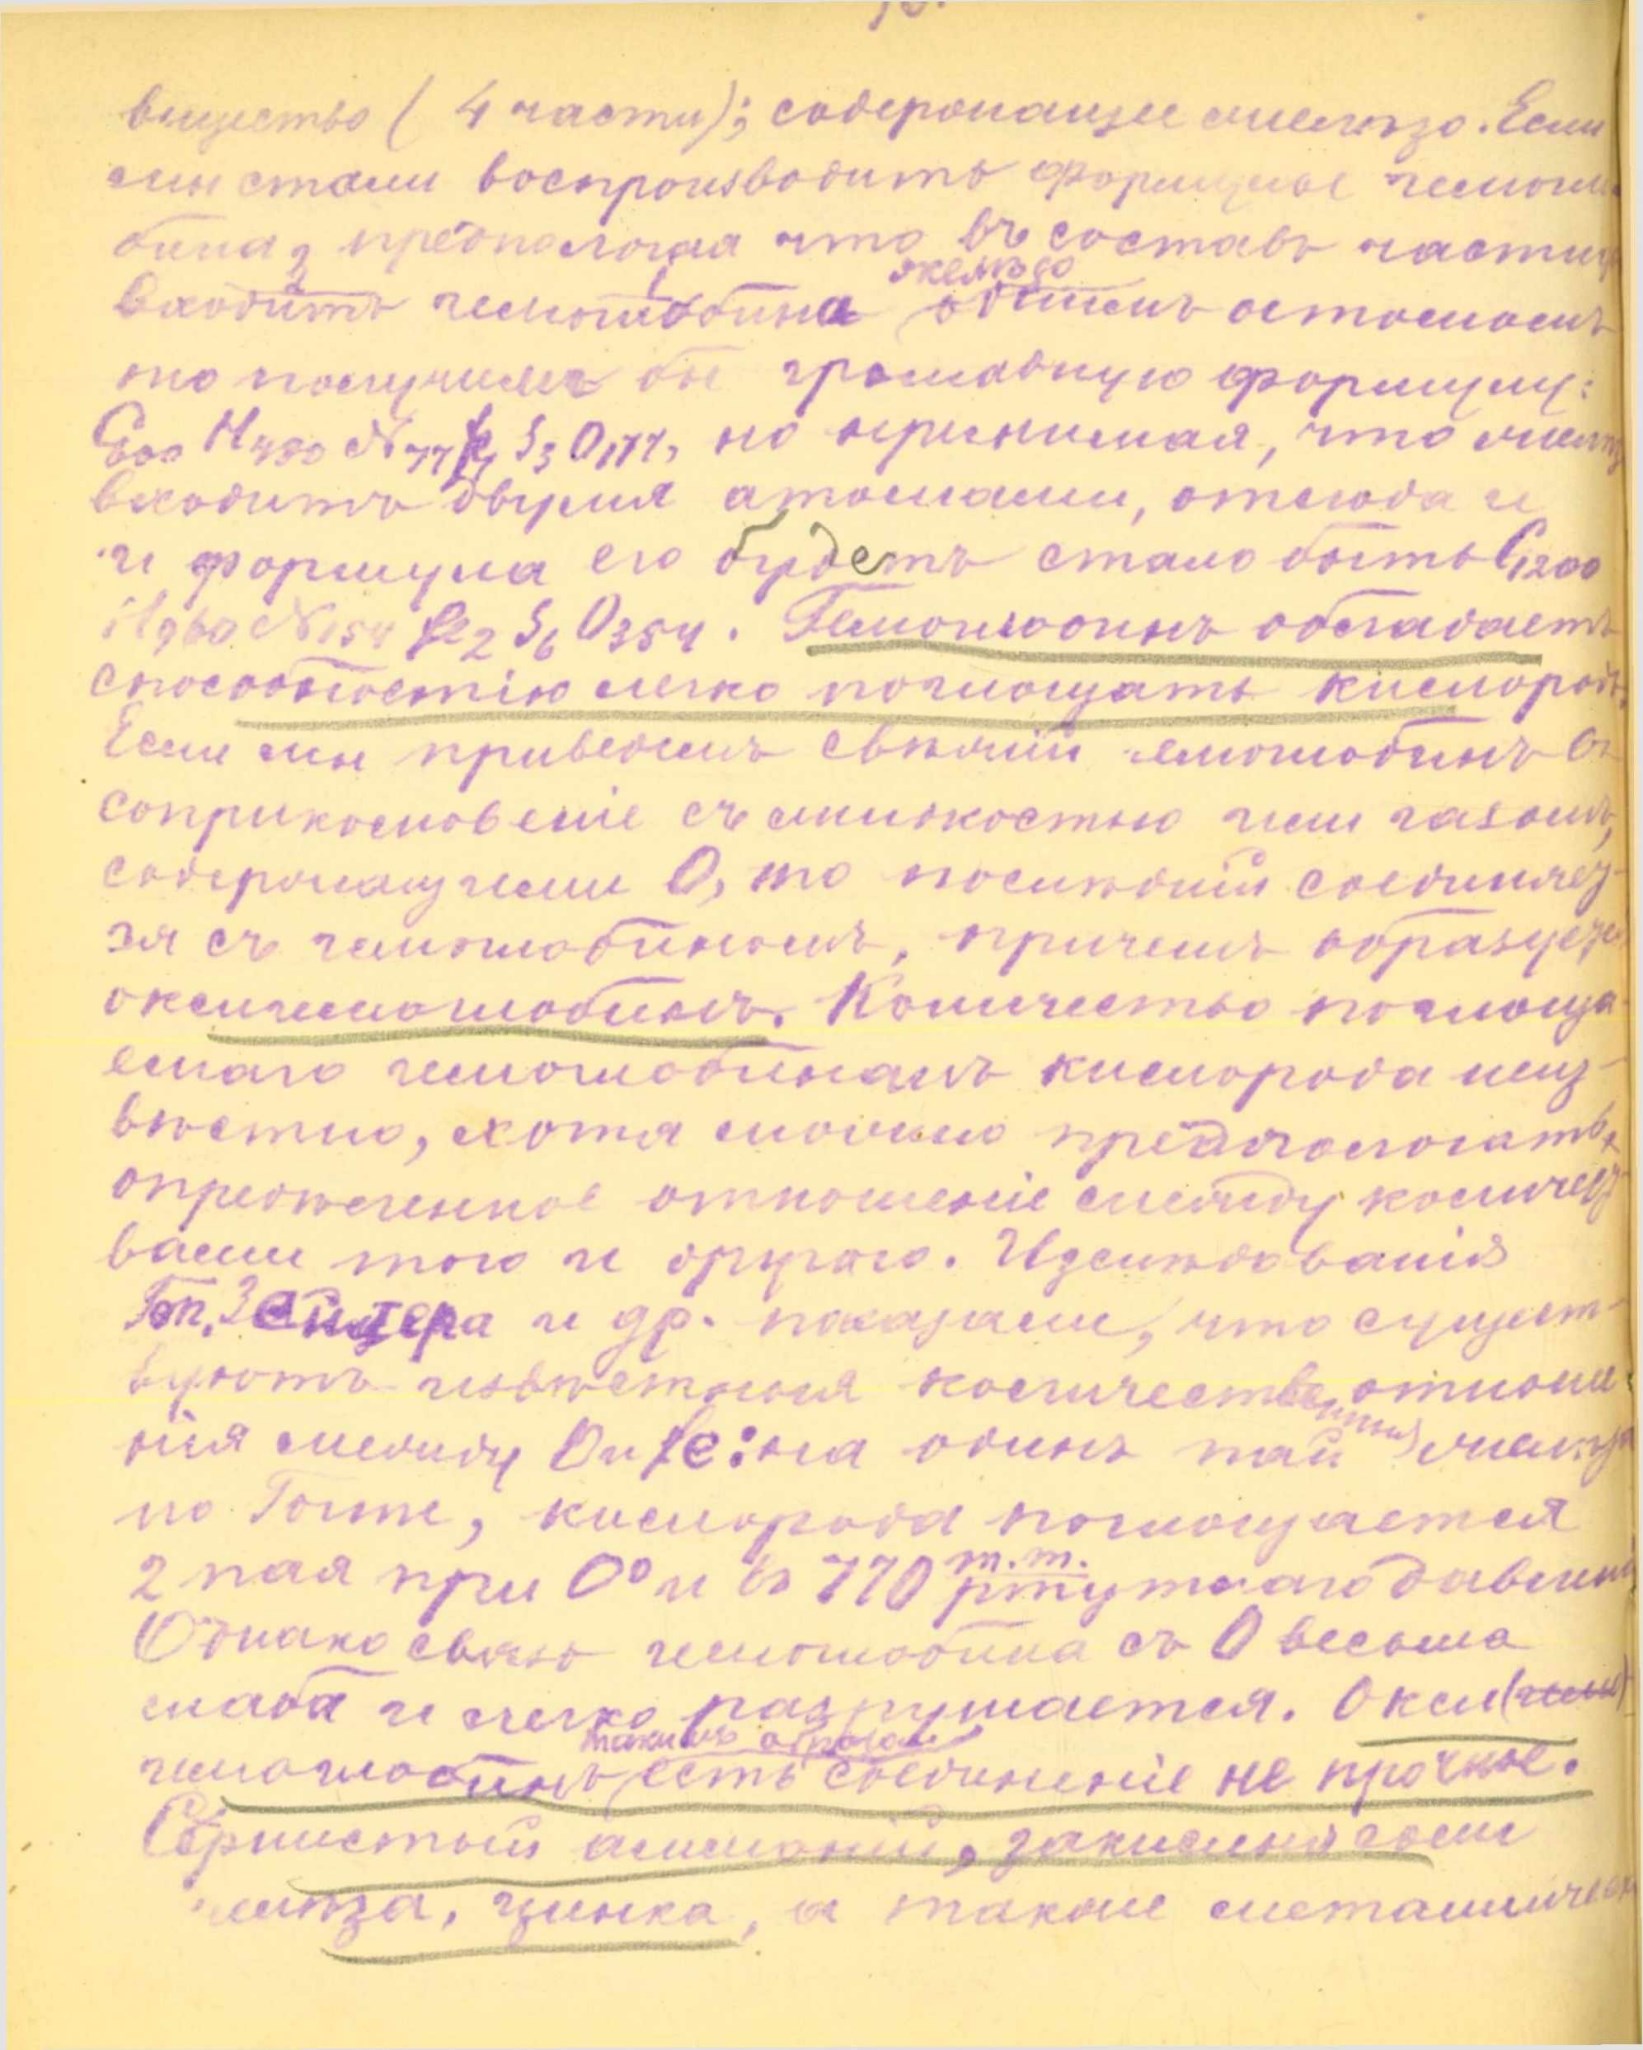 вещество (4 части); содержащее железо. Если
мы стали воспроизводить формулы гемогло
бина, предпологая что въ составъ частицы
входитъ гемоглобина железо однимъ остономомъ
то получили бы громадную формулу:
C600 H480 N77 Fe S3 O177, но принимая, что желез
входитъ двумя атомами, отсюда и
и формула его будетъ стало быть C1200
H960 N154 Fe2 S6 O354. Гемоглобинъ обладаетъ
способностію легко поглощать кислородъ.
Если мы приведемъ свѣжій гемоглобинъ въ
соприкосновеніе съ жидкостью или газомъ,
содержащими O, то послѣдній соединяет-
ся съ гемоглобиномъ, причемъ образуется
оксигемоглобинъ. Количество поглоща-
емаго гемоглобинамъ кислорода неиз-
вѣстно, хотя можно предпологать,
опредѣленное отношеніе между количест-
вами того и другого. Изслѣдованія
Гоп. Зейлера и др. показали, что сущест-
вуютъ извѣстныя количественныя отноше-
нія между O и Fe: на одинъ пай желѣза
по Гоппе, кислорода поглощается
2 пая при 0° и въ 770 m.m. ртутнаго давленія
Однако связь гемоглобина съ O весьма
слаба и легко разрушается. Окси(гемо)
гемоглобинъ такимъ образомъ есть соединеніе не прочное.
Сѣрнистый аммоній, закисныя соли
желѣза, цинка, а также металлическ